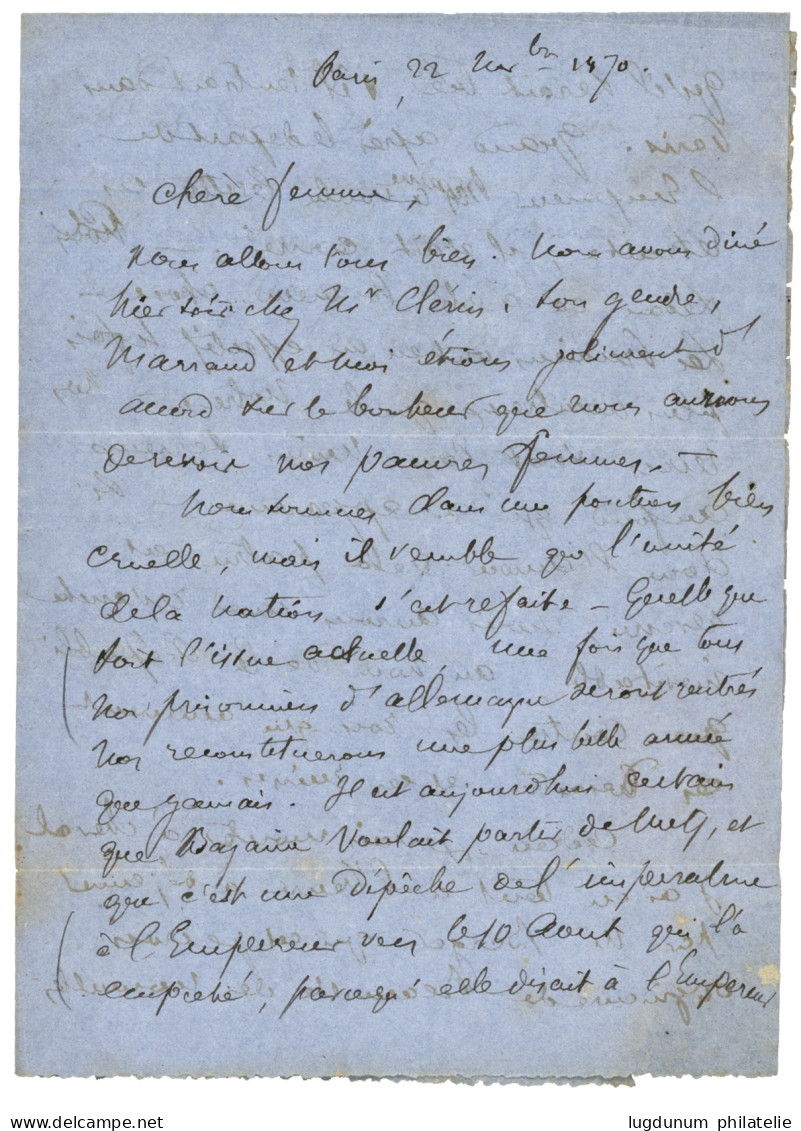 Paris, 22 Nov bre 1870.
Chere femme,
Nous allons tous bien. Nous avons diné
hier soir chez Mr Clerin. Son gendre,
Marraud et moi étions joliment d'
accord sur le bonheur que nous aurions
de revoir nos pauvres femmes. –
Nous sommes dans une position bien
cruelle, mais il semble que l'unité
de la Nation s'est refaite – Quelle que
soit l'issue actuelle, une fois que tous
nos prisonniers d'allemagne seront rentrés
nos reconstituerons une plus belle armée
que jamais. Il est aujourdhui certain
que Bazaine voulait partir de Metz, et
que c'est une dépêche de l'imperatrice
à l'Empereur vers le 10 Aout qui l'a
empeché, parcequ'elle disait à l'Empereur
lugdunum philatelie